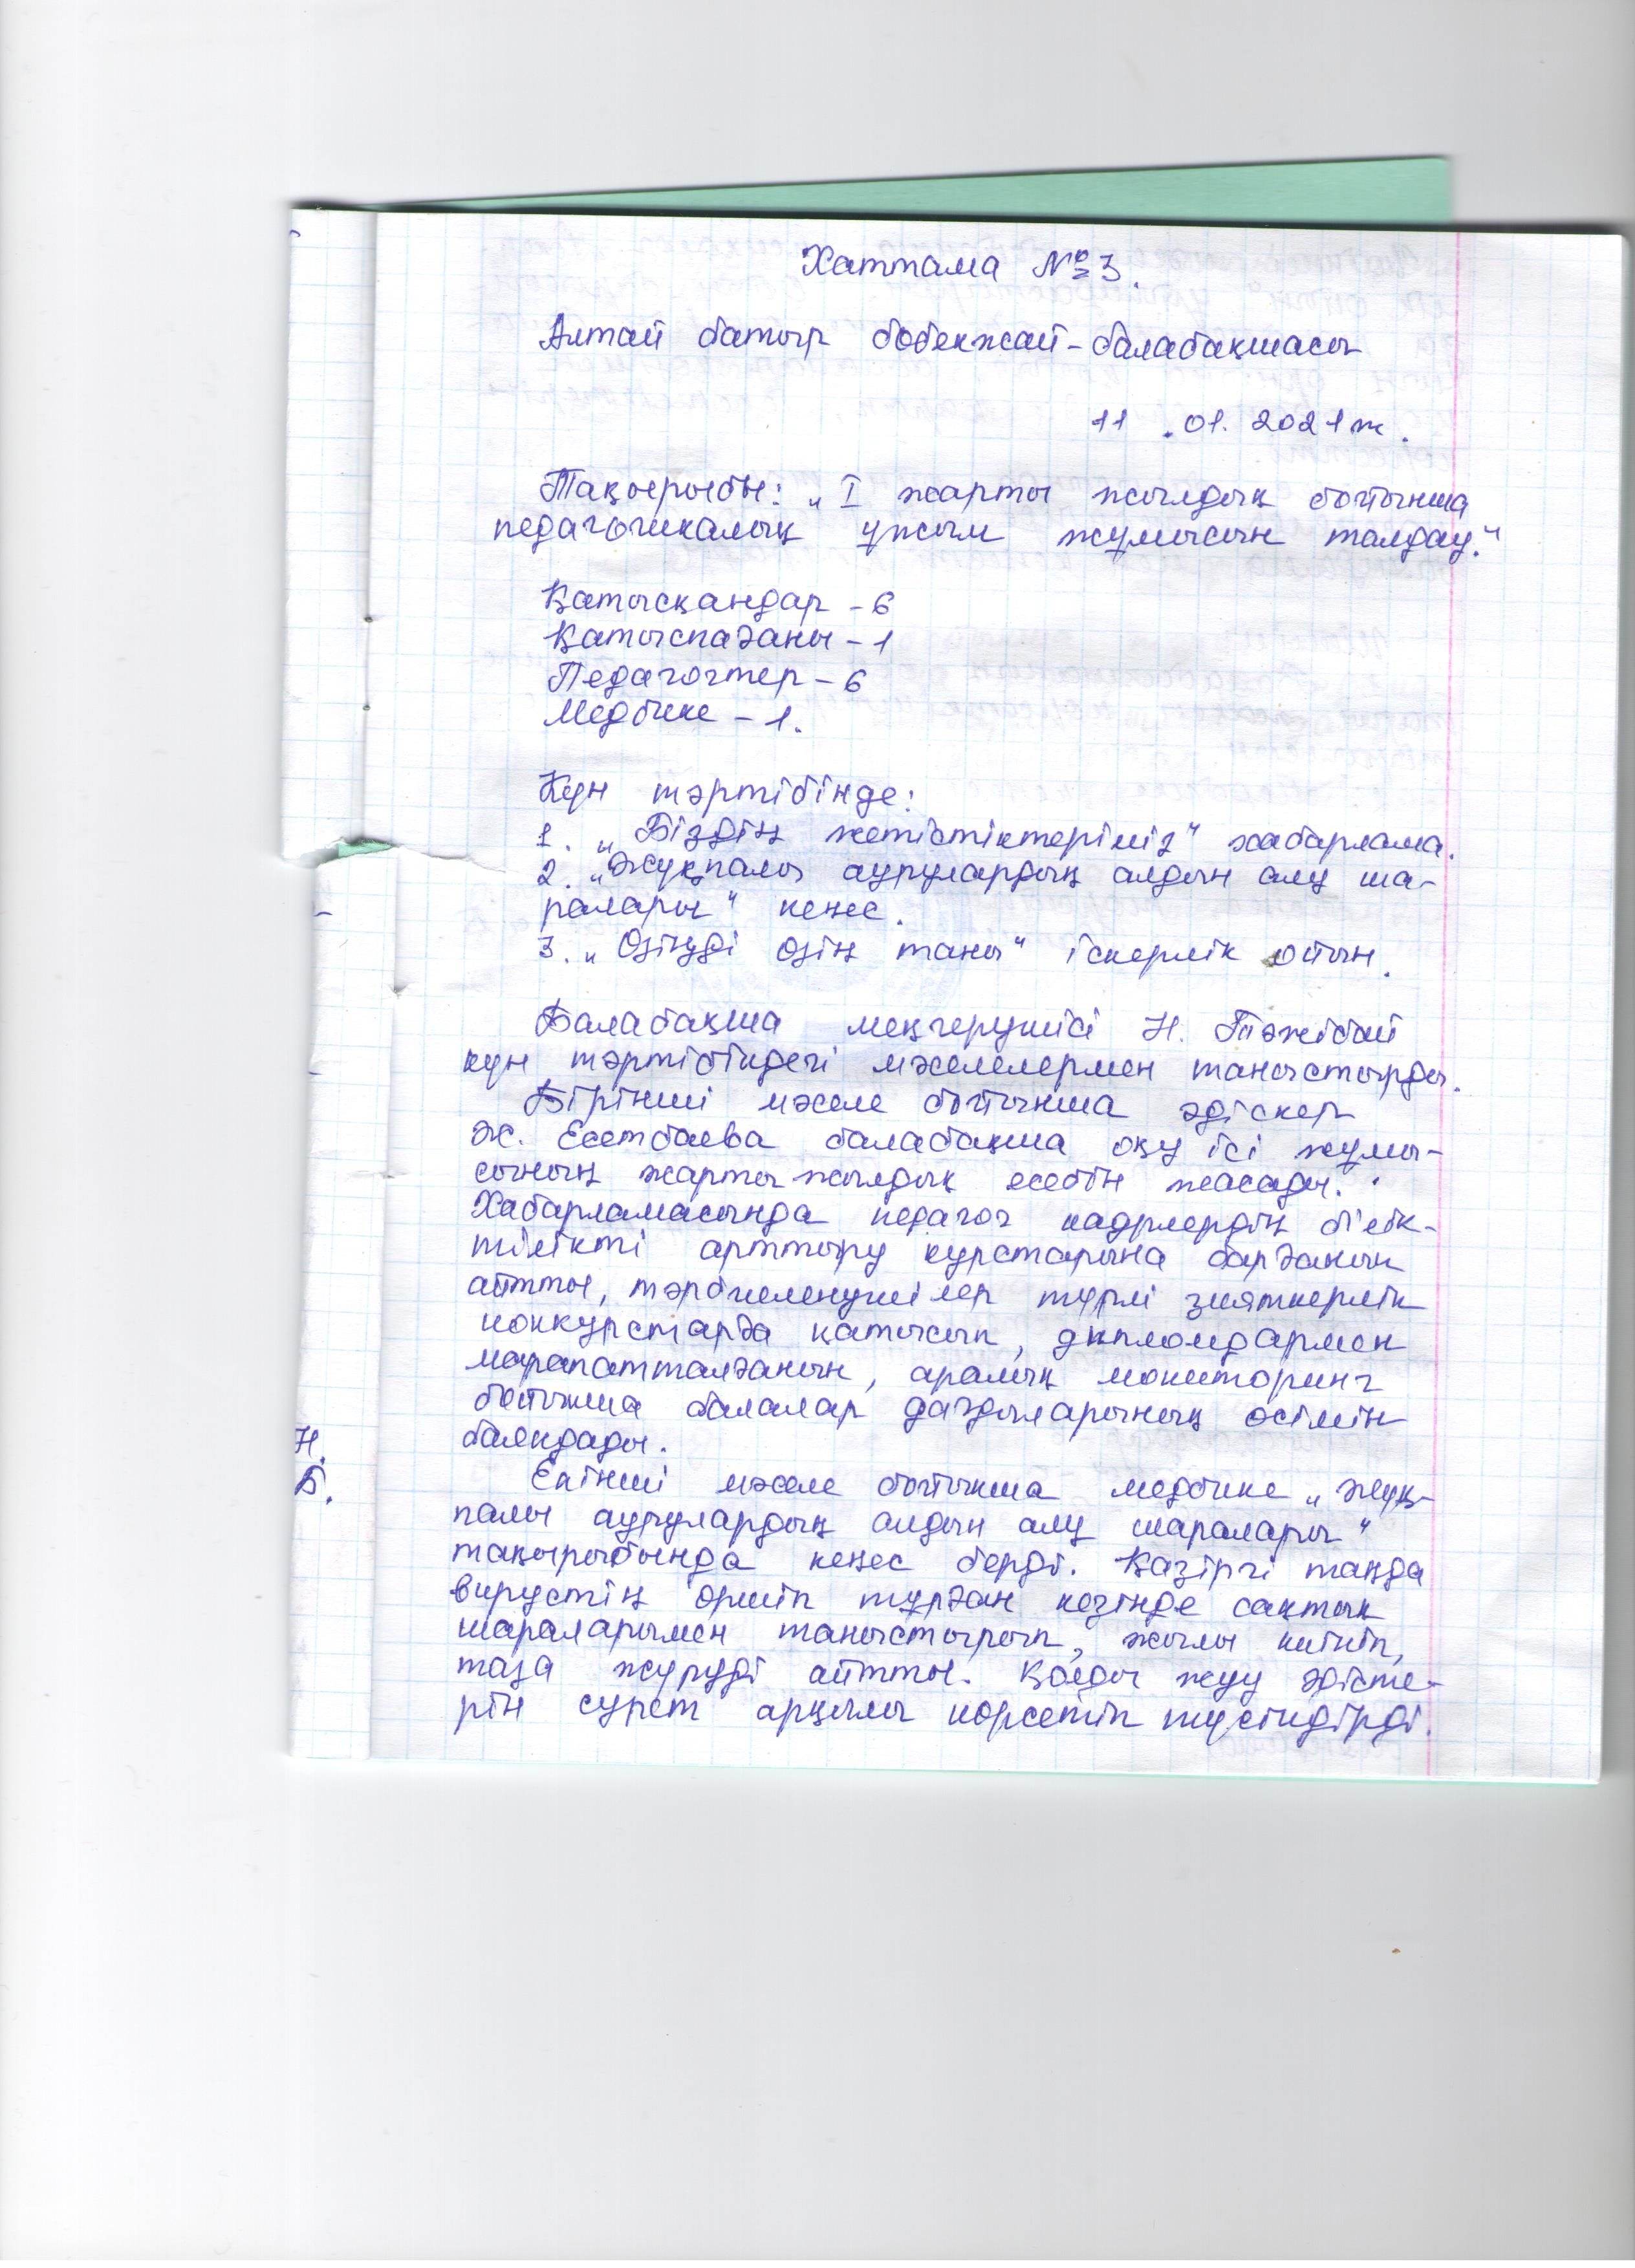 Хаттама №3.
Алтай батыр бөбекжай-балабақшасы
11 .01. 2021ж.
Тақырыбы: „I жарты жылдық бойынша
педагогикалық ұжым жұмысын талдау."
Қатысқандар - 6
Қатыспағаны - 1
Педагогтер - 6
Медбике - 1.
Күн тәртібінде:
1. „Біздің жетістіктеріміз" хабарлама.
2. „Жұқпалы аурулардың алдын алу ша-
ралары" кеңес.
3. „Өзіңді өзің таны" іскерлік ойын.
Балабақша меңгерушісі Н. Тәжібай
күн тәртібіндегі мәселелермен таныстырды.
Бірінші мәселе бойынша әдіскер
Ж. Есетбаева балабақша оқу ісі жұмы-
сының жарты жылдық есебін жасады.
Хабарламасында педагог кадрлердің білік-
тілікті арттыру курстарына барғанын
айтты, тәрбиеленушілер түрлі зияткерлік
конкурстарға қатысып, дипломдармен
марапатталғанын, аралық мониторинг
бойынша балалар дағдыларының өсімін
баяндады.
Екінші мәселе бойынша медбике „Жұқ-
палы аурулардың алдын алу шаралары"
тақырыбында кеңес берді. Қазіргі таңда
вирустің өршіп тұрған кезінде сақтық
шараларымен таныстырып, жылы киініп,
таза жүруді айтты. Қолды жуу әдісте-
рін сурет арқылы көрсетіп түсіндірді.
Н.
Б.